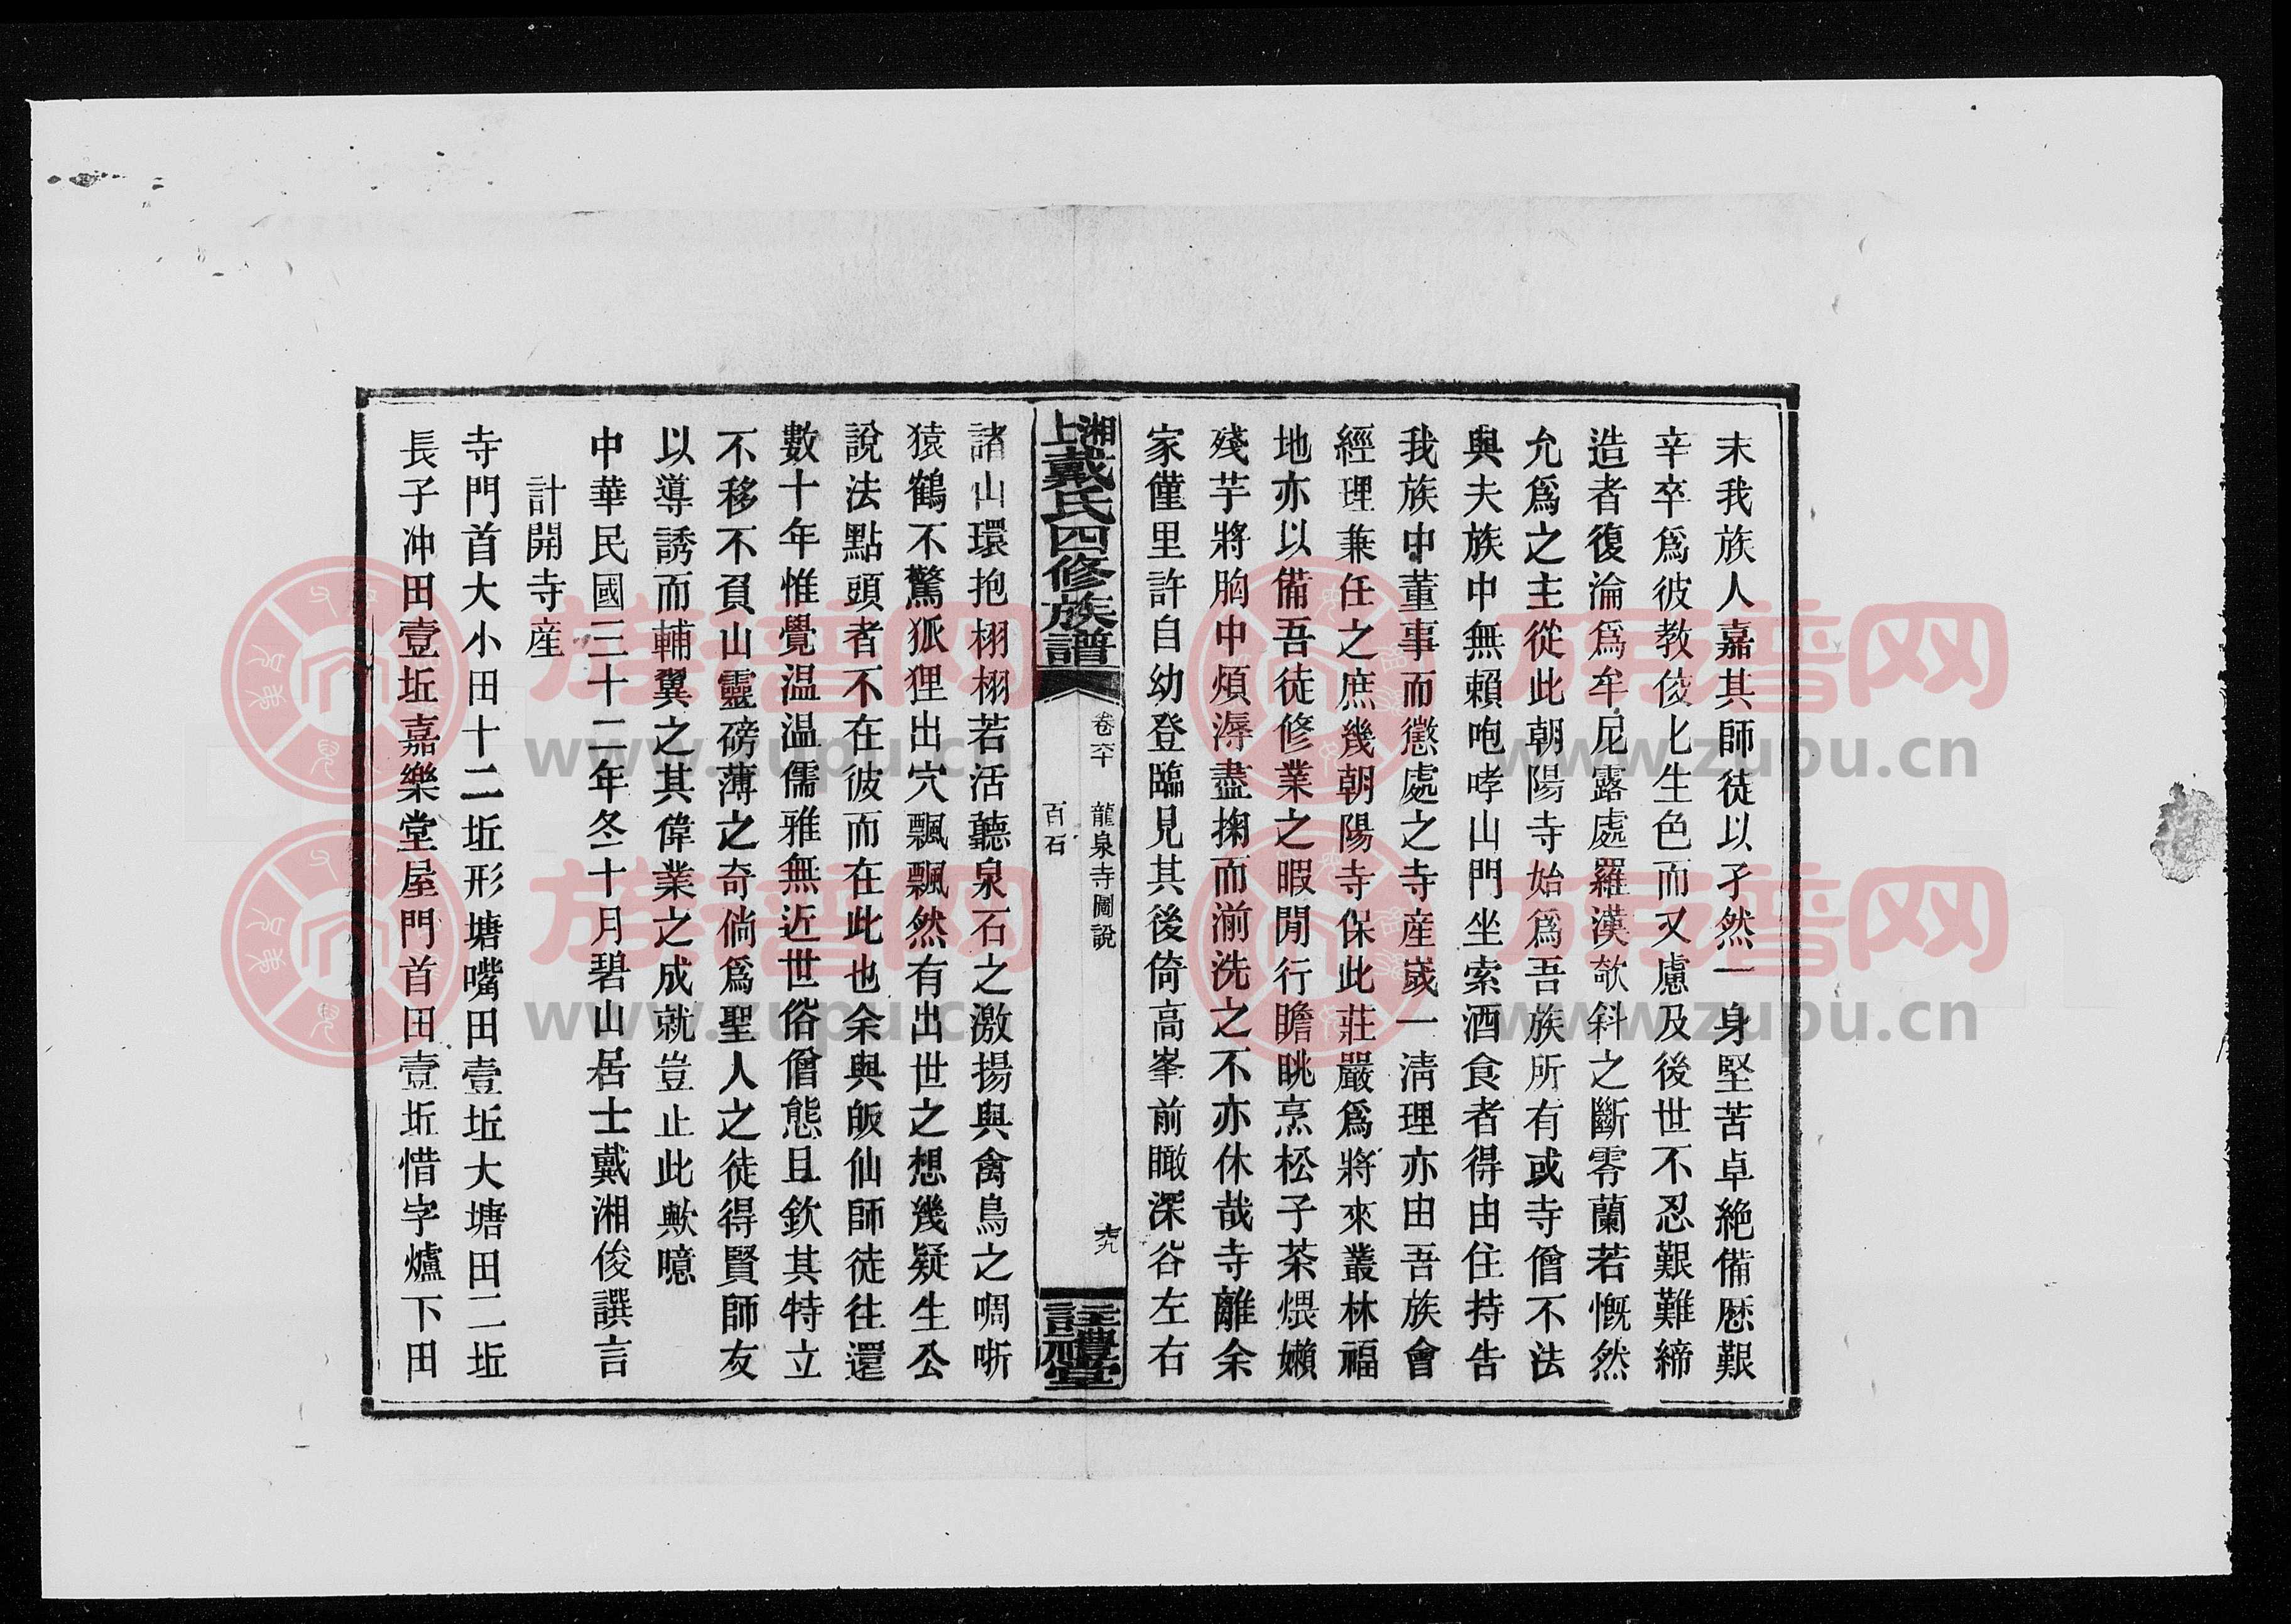 末我族人嘉其師徒以孑然一身堅苦卓絶備歷艱
辛卒爲彼教俊匕生色而又慮及後世不忍艱難締
造者復淪爲牟尼露處羅漢欹斜之斷零蘭若慨然
允爲之主從此朝陽寺始爲吾族所有或寺僧不法
與夫族中無賴咆哮山門坐索酒食者得由住持告
我族中董事而懲處之寺産歲一淸理亦由吾族會
經理兼任之庶幾朝陽寺保此莊嚴爲將來叢林福
地亦以備吾徒修業之暇閒行瞻眺烹松子茶煨嬾
殘芋將胸中煩溽盡掬而湔洗之不亦休哉寺離余
家僅里許自幼登臨見其後倚高峯前瞰深谷左右
湘上戴氏四修族譜
卷六十
龍泉寺圖說
百石
六九
註禮堂
諸山環抱栩栩若活聽泉石之激揚與禽鳥之啁哳
猿鶴不驚狐狸出穴飄飄然有出世之想幾疑生公
說法點頭者不在彼而在此也余與皈仙師徒往還
數十年惟覺温温儒雅無近世俗僧態且欽其特立
不移不負山靈磅薄之奇倘爲聖人之徒得賢師友
以導誘而輔翼之其偉業之成就豈止此歟噫
中華民國三十二年冬十月碧山居士戴湘俊譔言
計開寺産
寺門首大小田十二坵形塘嘴田壹坵大塘田二坵
長子冲田壹坵嘉樂堂屋門首田壹坵惜字爐下田
族譜网
www.zupu.cn
族譜网
www.zupu.cn
族譜网
www.zupu.cn
族譜网
www.zupu.cn